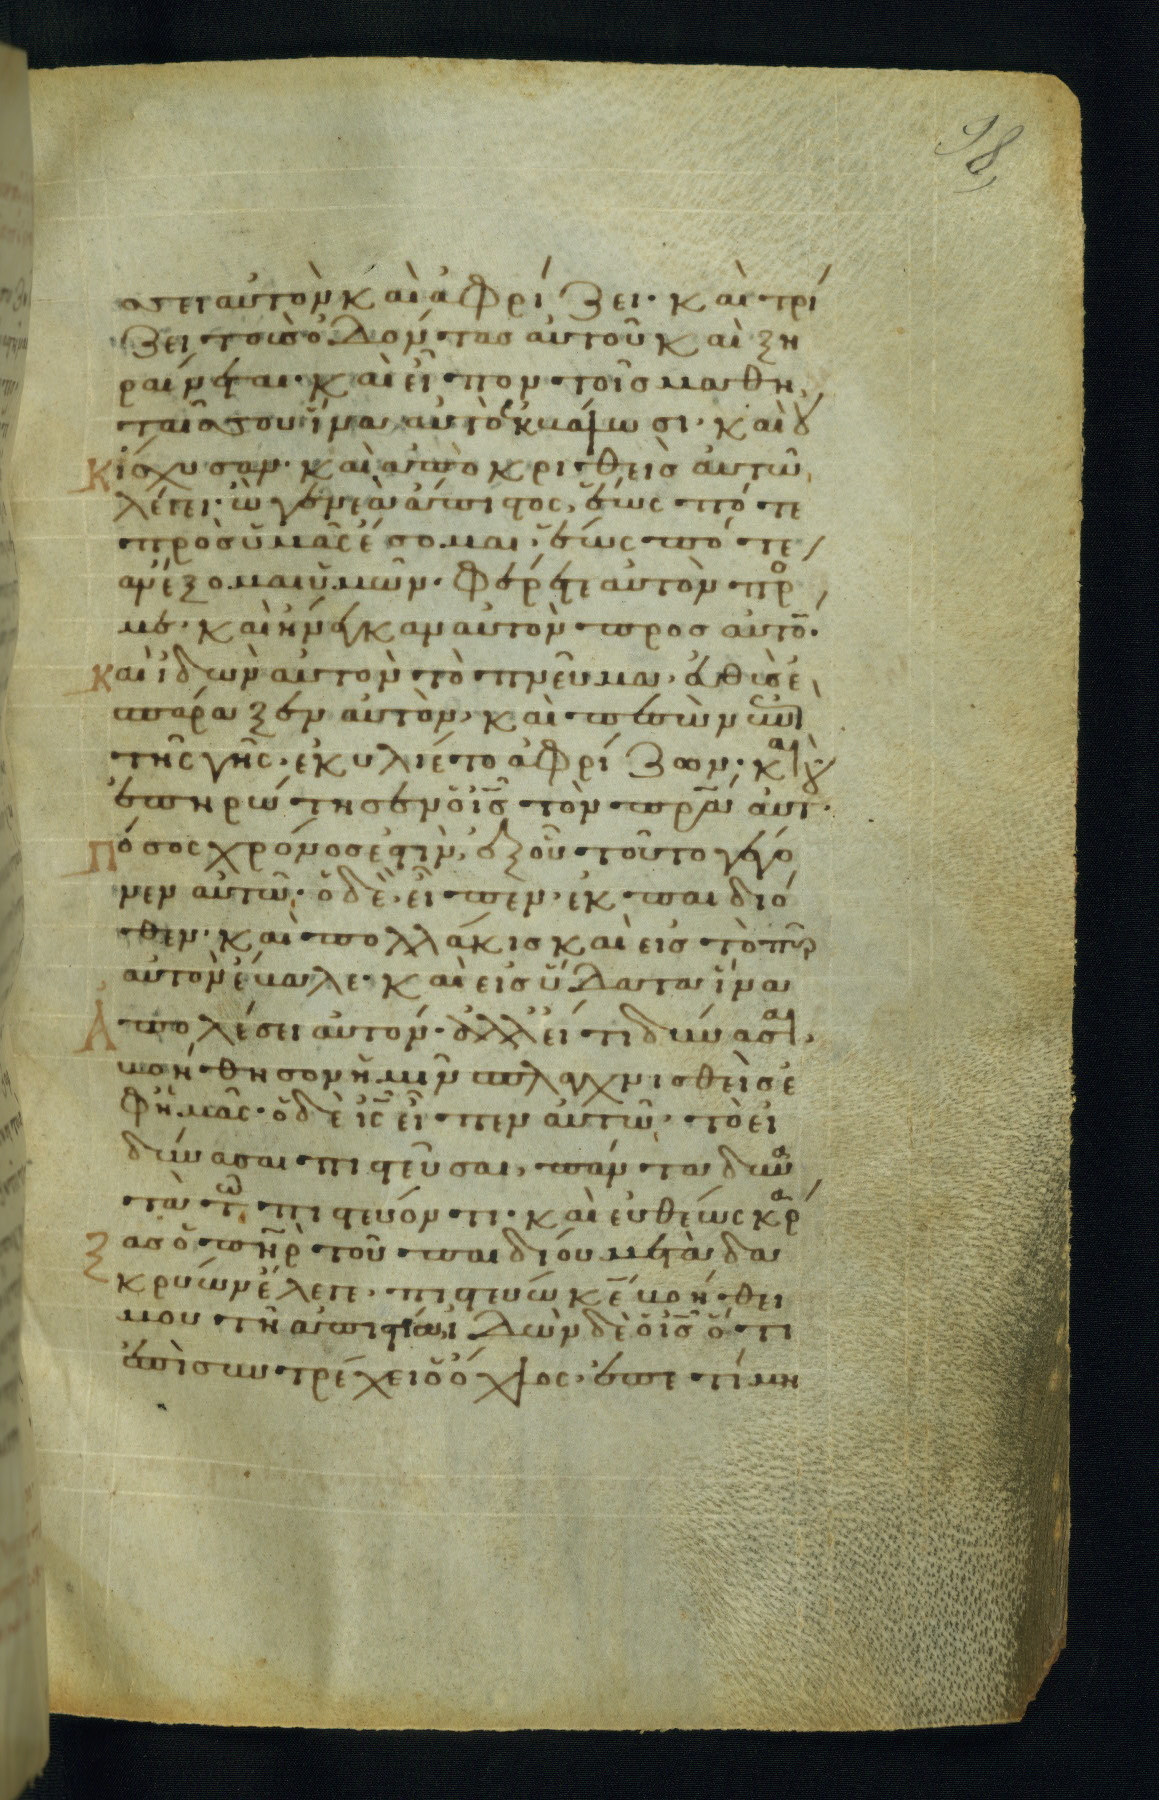 98
σσει αὐτὸν καὶ ἀφρίζει· καὶ τρί
ζει τοὺς ὀδόντας αὐτοῦ καὶ ξη
ραίνεται· καὶ εἶπον τοῖς μαθη
ταῖς σου ἵνα αὐτὸ ἐκβάλωσι· καὶ οὐ
κ ἴσχυσαν· καὶ ἀποκριθεὶς αὐτῶ
λέγει· ὦ γενεὰ ἄπιστος, ἕως πότε
πρὸς ὑμᾶς ἔσομαι; ἕως πότε
ἀνέξομαι ὑμῶν· φέρετε αὐτὸν πρ
με· καὶ ἤνεγκαν αὐτὸν προσ αὐτο·
καὶ ἰδὼν αὐτὸν τὸ πνεῦμα, εὐθὺς ἐ
σπάραξεν αὐτὸν, καὶ πεσὼν ἐπὶ
τῆς γῆς· ἐκυλίετο ἀφρίζων· καὶ
ἐπηρώτησεν ὁ ισ τὸν πρα αὐτ·
Πόσος χρόνος ἐστὶν, ἐξ οὗ τοῦτο γέγο
νεν αὐτῶ· ὁ δὲ· εἶπεν· ἐκ παιδιό
θεν· καὶ πολλάκις καὶ εἰς τὸ πῦρ
αὐτὸν ἔβαλε· καὶ εἰς ὕδατα ἵνα
Ἀπολέσει αὐτόν· ἀλλ' εἴ τι δύνασαι,
βοήθησον ἡμῖν σπλαχνισθεὶς ἐ
φ' ἡμᾶς· ὁ δὲ ις εἶπεν αὐτῶ· τὸ εἰ
δύνασαι πιστεῦσαι, πάντα δυνα
τὰ τω πιστεύοντι· καὶ εὐθέως κρά
ξας ὁ πηρ τοῦ παιδίου μετὰ δα
κρύων ἔλεγε· πιστεύω κε βοήθει
μου τῆ ἀπιστία· ἰδὼν δὲ ὁ ισ ὅτι
ἐπισυντρέχει ὁ ὄχλος· ἐπετίμη